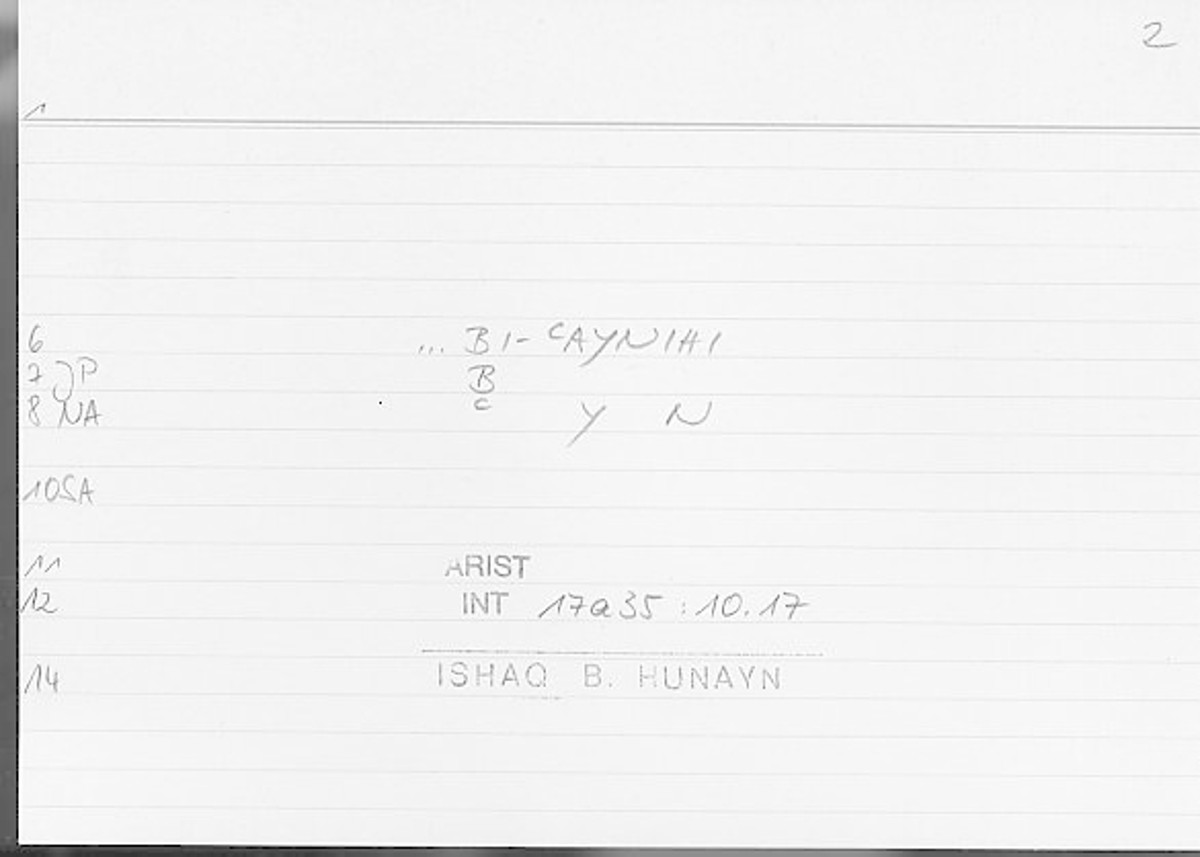 2
1
6 ... BI-ᶜAYNIHI
7 JP B
8 NA c Y N
10SA
11 ARIST
12 INT 17a35 : 10.17
14 ISHAQ B. HUNAYN